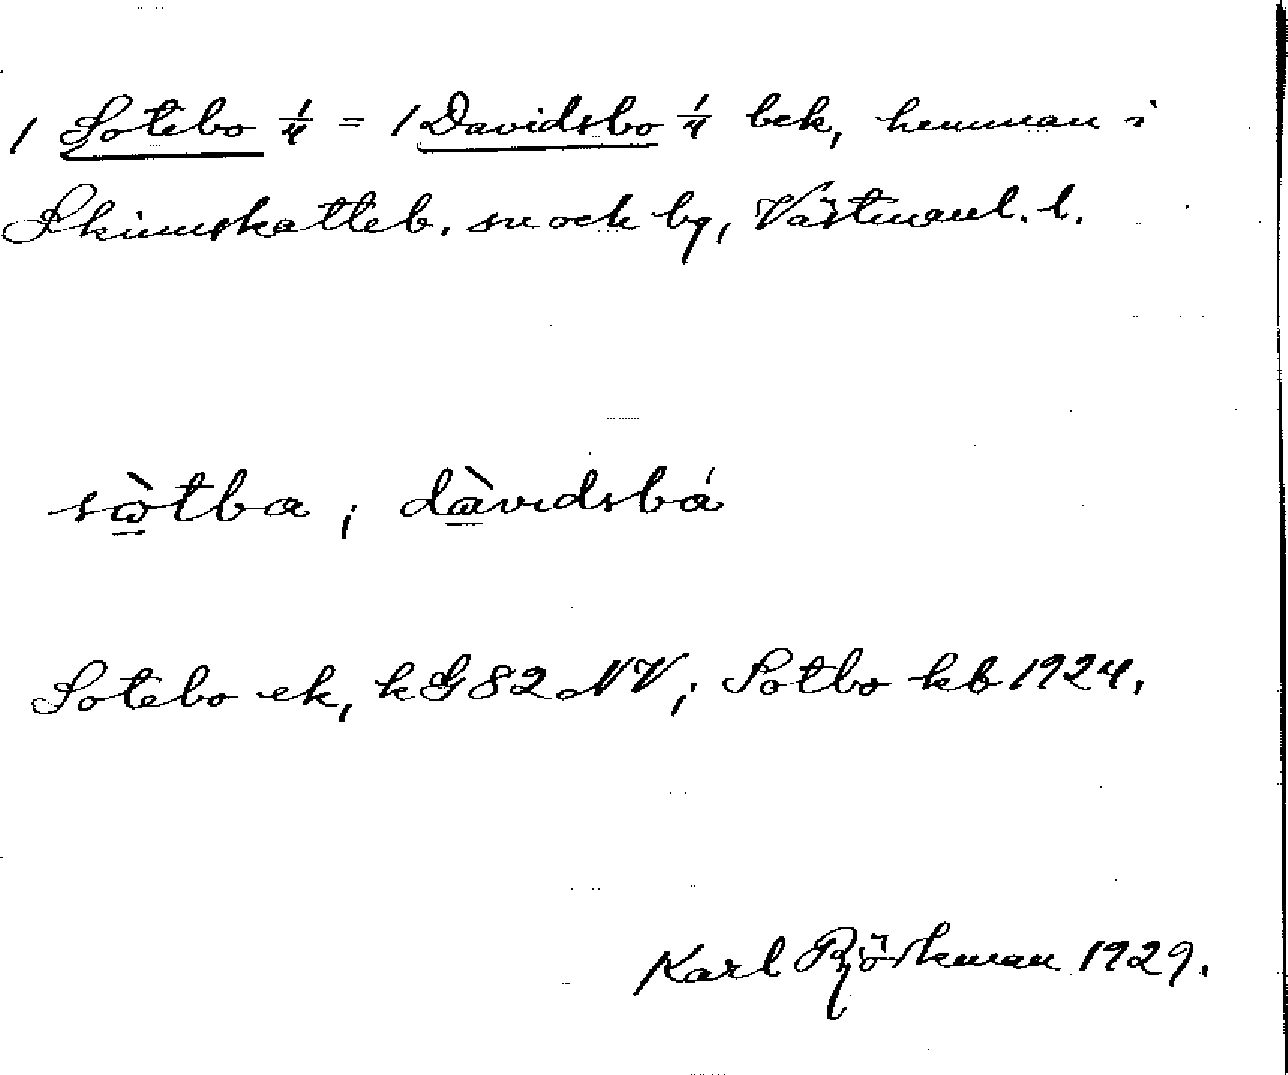 1 Sotebo 1/4 = 1 Davidsbo 1/4 bek, hemman i
Skinnskatteb. sn och by, Västmanl. l.
sὼtba; dὼvidsbá
Sotebo ek, kG 82 NV; Sotbo kb 1924.
Karl Björkman 1929.